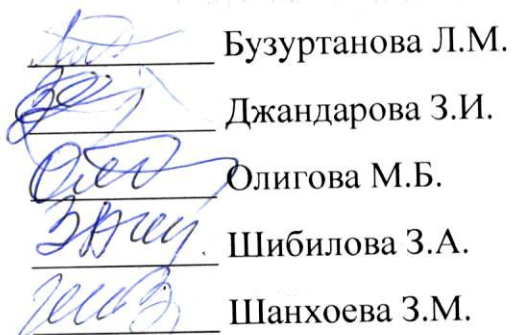 Бузуртанова Л.М.
Джандарова З.И.
Олигова М.Б.
Шибилова З.А.
Шанхоева З.М.